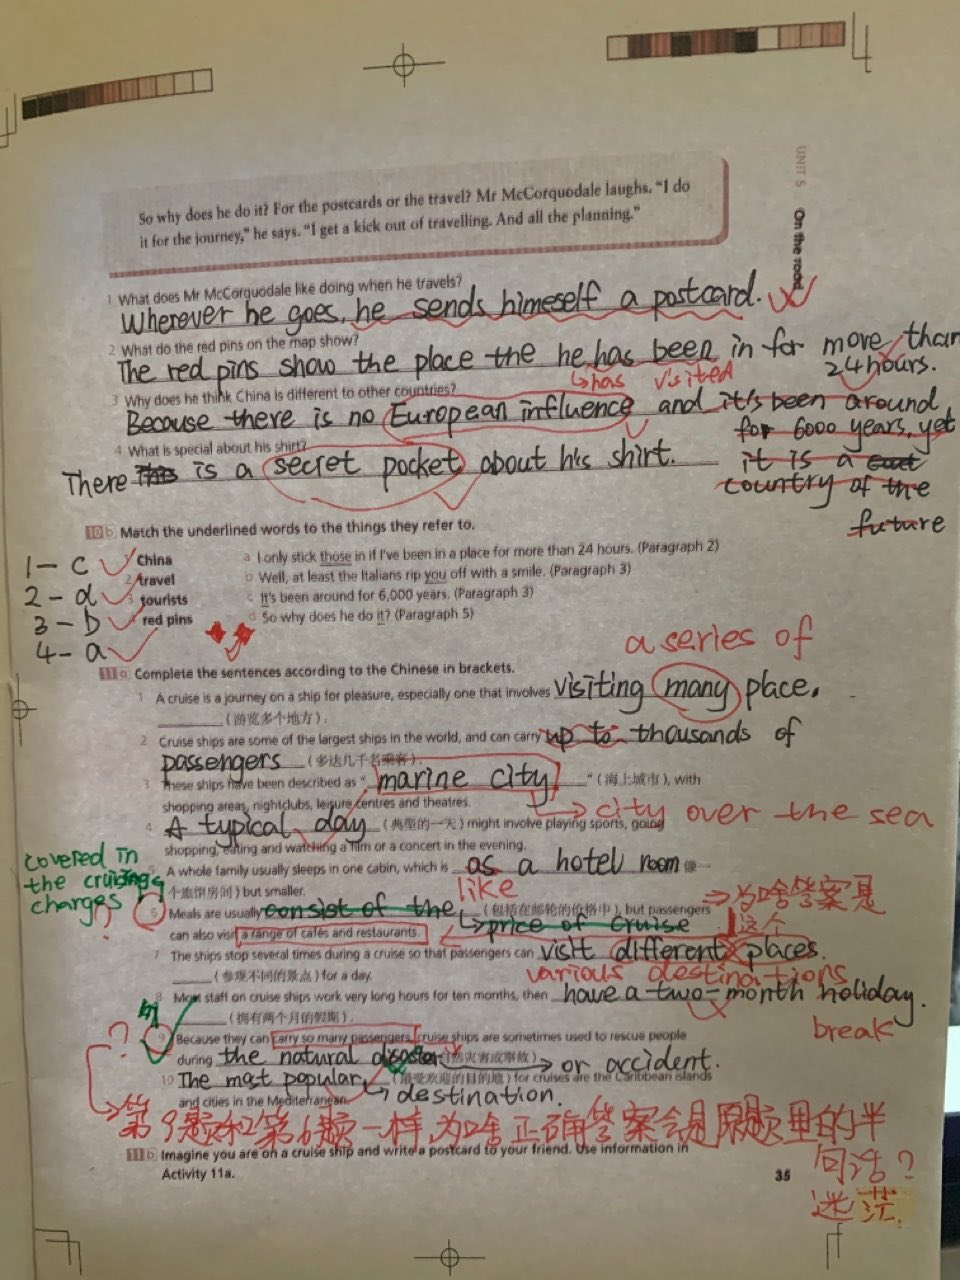 UNIT 5 On the road
So why does he do it? For the postcards or the travel? Mr McCorquodale laughs. "I do
it for the journey," he says. "I get a kick out of travelling. And all the planning."
1 What does Mr McCorquodale like doing when he travels?
Wherever he goes, he sends himeself a postcard.
2 What do the red pins on the map show?
The red pins show the place the he has been in for more than
24 hours.
has visited
3 Why does he think China is different to other countries?
Because there is no European influence and it's been around
for 6000 years, yet
4 What is special about his shirt?
it is a
There is a secret pocket about his shirt.
country of the
future
10 b Match the underlined words to the things they refer to.
1 - c
China
a I only stick those in if I've been in a place for more than 24 hours. (Paragraph 2)
2 - d
travel
b Well, at least the Italians rip you off with a smile. (Paragraph 3)
3 - b
tourists
c It's been around for 6,000 years. (Paragraph 3)
4 - a
red pins
d So why does he do it? (Paragraph 5)
a series of
11 a Complete the sentences according to the Chinese in brackets.
1 A cruise is a journey on a ship for pleasure, especially one that involves visiting many place.
(游览多个地方).
2 Cruise ships are some of the largest ships in the world, and can carry up to thousands of
passengers (多达几千名乘客).
3 These ships have been described as "marine city" (海上城市), with
shopping areas, nightclubs, leisure centres and theatres.
city over the sea
4 A typical day (典型的一天) might involve playing sports, going
shopping, eating and watching a film or a concert in the evening.
covered in
the cruising
charges?
5 A whole family usually sleeps in one cabin, which is as a hotel room 像一
个旅馆房间) but smaller.
like
6 Meals are usually consist of the (包括在邮轮的价格中), but passengers
price of cruise
can also visit a range of cafés and restaurants.
为啥答案是
这个
?
7 The ships stop several times during a cruise so that passengers can visit different places.
various destinations
(参观不同的景点) for a day.
8 Most staff on cruise ships work very long hours for ten months, then have a two-month holiday.
(拥有两个月的假期).
break
?
9 Because they can carry so many passengers, cruise ships are sometimes used to rescue people
during the natural disaster (自然灾害或事故) or accident.
10 The most popular (最受欢迎的目的地) for cruises are the Caribbean islands
destination.
and cities in the Mediterranean.
第9题和第6题一样,为啥正确答案会是原题里的半
句话?
迷茫.
11 b Imagine you are on a cruise ship and write a postcard to your friend. Use information in
Activity 11a.
35